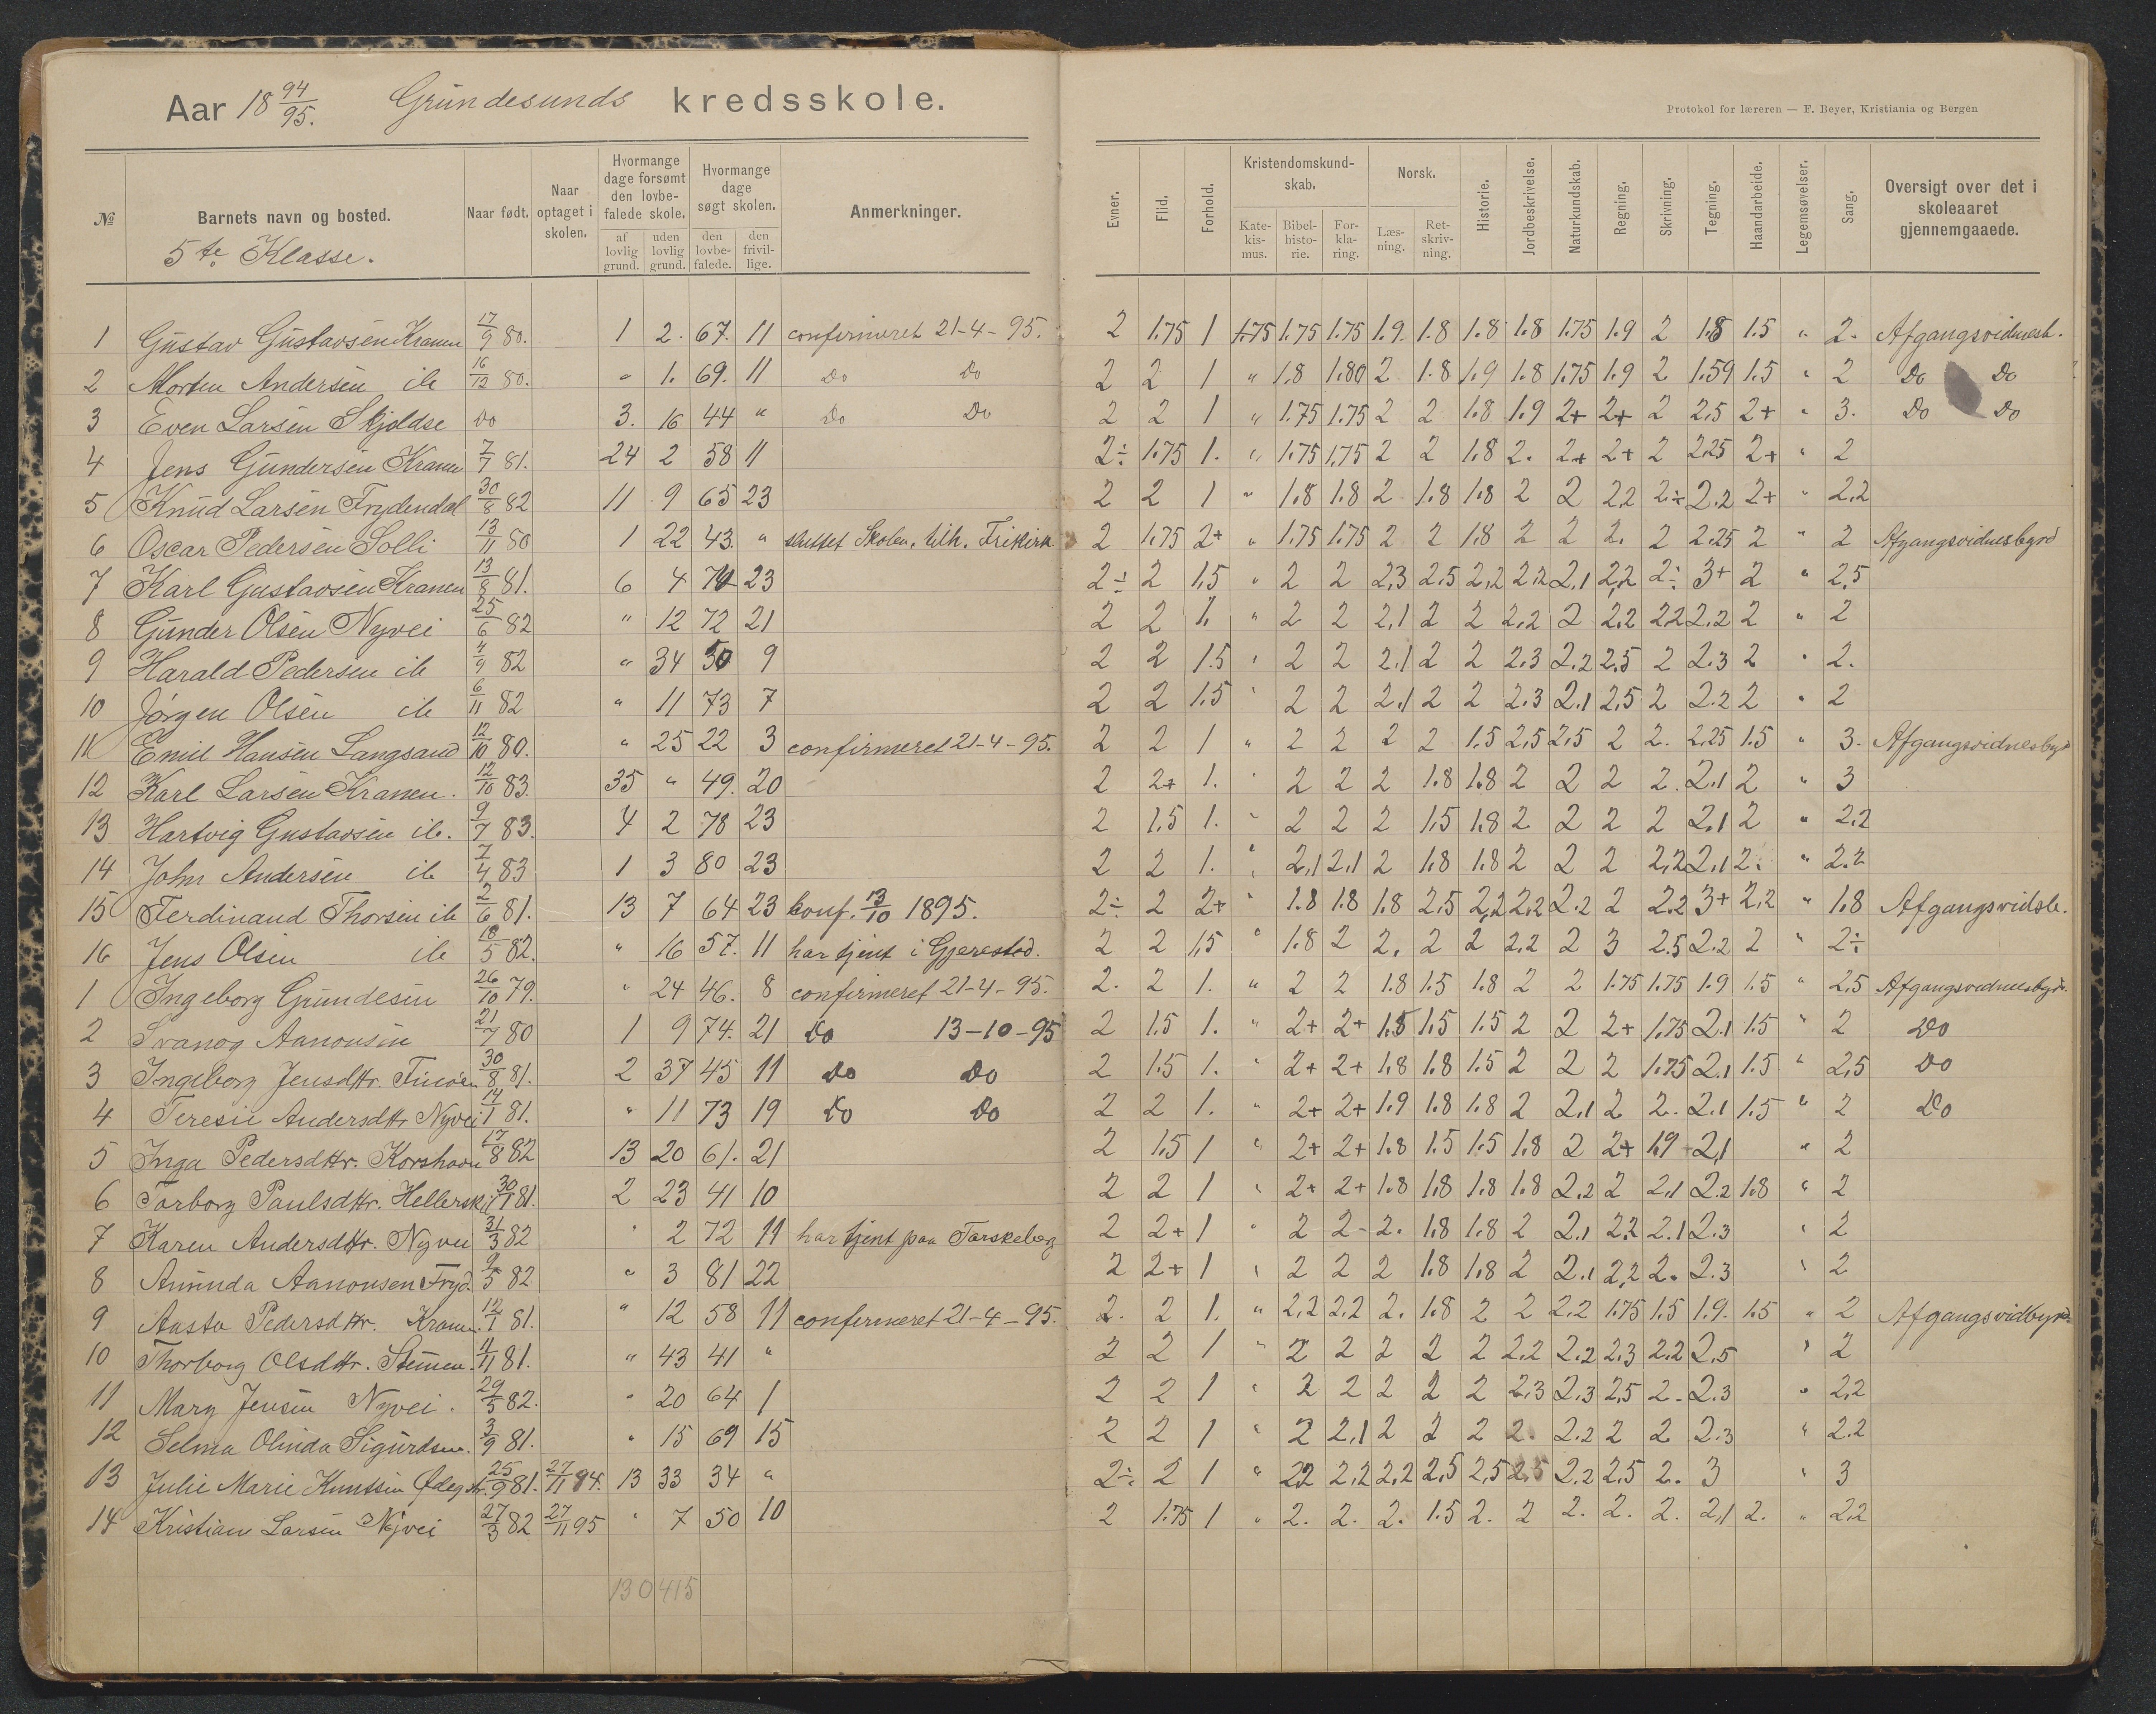 Aar 18 94/95. Grundesunds kredsskole.
Protokol for læreren — F. Beyer, Kristiania og Bergen
№ Barnets navn og bosted. Naar født. Naar optaget i skolen. Hvormange dage forsømt den lovbefalede skole. af lovlig grund. uden lovlig grund. Hvormange dage søgt skolen. den lovbefalede. den frivillige. Anmerkninger. Evner. Flid. Forhold. Kristendomskundskab. Katekismus. Bibelhistorie. Forklaring. Norsk. Læsning. Retskrivning. Historie. Jordbeskrivelse. Naturkundskab. Regning. Skrivning. Tegning. Haandarbeide. Legemsøvelser. Sang. Oversigt over det i skoleaaret gjennemgaaede.
5te Klasse.
1 Gustav Gustavsen Kranen 17/9 80. 1 2. 67. 11 confirmeret 21-4-95. 2 1.75 1 1.75 1.75 1.75 1.9. 1.8 1.8 1.8 1.75 1.9 2 1.8 1.5 " 2. Afgangsvidnesb.
2 Morten Andersen ib 16/12 80. " 1. 69. 11 Do Do 2 2 1 " 1.8 1.80 2 1.8 1.9 1.8 1.75 1.9 2 1.59 1.5 " 2 Do Do
3 Even Larsen Skjoldse Do 3. 16 44 " Do Do 2 2 1 " 1.75 1.75 2 2 1.8 1.9 2+ 2+ 2 2.5 2+ " 3. Do Do
4 Jens Gundersen Kranen 7/7 81. 24 2 58 11 2÷ 1.75 1. " 1.75 1.75 2 2 1.8 2. 2+ 2+ 2 2.25 2+ " 2
5 Knud Larsen Frydendal 30/8 82 11 9 65 23 2 2 1 " 1.8 1.8 2 1.8 1.8 2 2 2.2 2÷ 2.2 2+ " 2.2
6 Oscar Pedersen Solli 13/11 80 1 22 43. " sluttet Skolen, tilh. Frikirk. 2 1.75 2+ " 1.75 1.75 2 2 1.8 2 2 2. 2 2.25 2 " 2 Afgangsvidnesbyrd
7 Karl Gustavsen Kranen 13/8 81. 6 4 74 23 2÷ 2 1.5 " 2 2 2.3 2.5 2.2 2.2 2.1 2.2 2÷ 3+ 2 " 2.5
8 Gunder Olsen Nyvei 25/6 82 " 12 72 21 2 2 1. " 2 2 2.1 2 2 2.2 2 2.2 2.2 2.2 2 " 2
9 Harald Pedersen ib 4/9 82 " 34 50 9 2 2 1.5 " 2 2 2.1 2 2 2.3 2.2 2.5 2 2.3 2 " 2.
10 Jørgen Olsen ib 6/11 82 " 11 73 7 2 2 1.5 " 2 2 2.1 2 2 2.3 2.1 2.5 2 2.2 2 " 2
11 Emil Hansen Langsand 12/10 80. " 25 22 3 confirmeret 21-4-95. 2 2 1 " 2 2 2 2 1.5 2.5 2.5 2 2. 2.25 1.5 " 3. Afgangsvidnesbyrd
12 Karl Larsen Kranen. 12/10 83. 35 " 49. 20 2 2+ 1. " 2 2 2 1.8 1.8 2 2 2 2. 2.1 2 " 3
13 Hartvig Gustavsen ib. 9/7 83. 4 2 78 23 2 1.5 1. " 2 2 2 1.5 1.8 2 2 2 2 2.1 2 " 2.2
14 John Andersen ib 7/4 83 1 3 80 23 2 2 1. " 2.1 2.1 2 1.8 1.8 2 2 2 2.2 2.1 2. " 2.2
15 Ferdinand Thorsen ib 2/6 81. 13 7 64 23 konf. 13/10 1895. 2÷ 2 2+ " 1.8 1.8 1.8 2.5 2.2 2.2 2.2 2 2.2 3+ 2.2 " 1.8 Afgangsvidsb.
16 Jens Olsen ib 18/5 82. " 16 57. 11 har tjent i Gjerestad. 2 2 1.5 " 1.8 2 2. 2 2 2.2 2 3 2.5 2.2 2 " 2÷
1 Ingeborg Grundesen 26/10 79. " 24 46. 8 confirmeret 21-4-95. 2. 2 1. " 2 2 1.8 1.5 1.8 2 2 1.75 1.75 1.9 1.5 " 2.5 Afgangsvidnesbyrd.
2 Svanog Aanonsen 21/7 80 1 9 74. 21 Do 13-10-95 2 1.5 1. " 2+ 2+ 1.8 1.5 1.5 2 2 2+ 1.75 2.1 1.5 " 2 Do
3 Ingeborg Jensdttr. 30/8 81. 2 37 45 11 Do Do 2 1.5 1. " 2+ 2+ 1.8 1.8 1.5 2 2 2 1.75 2.1 1.5 " 2.5 Do
4 Teresie Andersdttr Nyvei 14/1 81. " 11 73 19 Do Do 2 2 1. " 2+ 2+ 1.9 1.8 1.8 2 2.1 2 2. 2.1 1.5 " 2 Do
5 Inga Pedersdttr. Korshavn 17/8 82 13 20 61. 21 2 1.5 1 " 2+ 2+ 1.8 1.5 1.5 1.8 2 2+ 1.9 2.1 " 2
6 Torborg Paulsdttr. Hellerskil 30/1 81. 2 23 41 10 2 2 1 " 2+ 2+ 1.8 1.8 1.8 1.8 2.2 2 2.1 2.2 1.8 " 2
7 Karen Andersdttr. Nyvei 31/3 82 " 2 72 11 har tjent paa Torskeberg 2 2+ 1 " 2 2- 2. 1.8 1.8 2 2.1 2.2 2.1 2.3 " 2
8 Amunda Aanonsen Fryd. 9/5 82 " 3 81 22 2 2+ 1 " 2 2 2 1.8 1.8 2 2.1 2.2 2. 2.3 " 2
9 Aasta Pedersdttr. Kranen. 12/1 81. " 12 58 11 confirmeret 21-4-95. 2. 2 1. " 2.2 2.2 2. 1.8 2 2 2.2 1.75 1.5 1.9. 1.5 " 2 Afgangsvidbyrd
10 Thorborg Olsdttr. 11/11 81. " 43 41 " 2 2 1 " 2 2 2 2 2 2.2 2.2 2.3 2.2 2.5 " 2
11 Mary Jensen Nyvei. 29/5 82. " 20 64 1 2 2 1 " 2 2 2 2 2 2.3 2.3 2.5 2. 2.3 " 2.2
12 Selma Olinda Sigurdsen. 3/9 81. " 15 69 15 2 2 1 " 2 2.1 2 2 2 2. 2.2 2 2 2.3 " 2.2
13 Julie Marie Knutsen Ødegår. 25/9 81. 27/11 94. 13 33 34 " 2÷ 2 1 " 2.2 2.2 2.2 2.5 2.5 2.5 2.2 2.5 2. 3 " 3
14 Kristiane Larsen Nyvei 27/3 82 27/11 95 " 7 50 10 2 1.75 1 " 2. 2. 2. 1.5 2. 2 2. 2. 2. 2.1 2. " 2.2
130 415